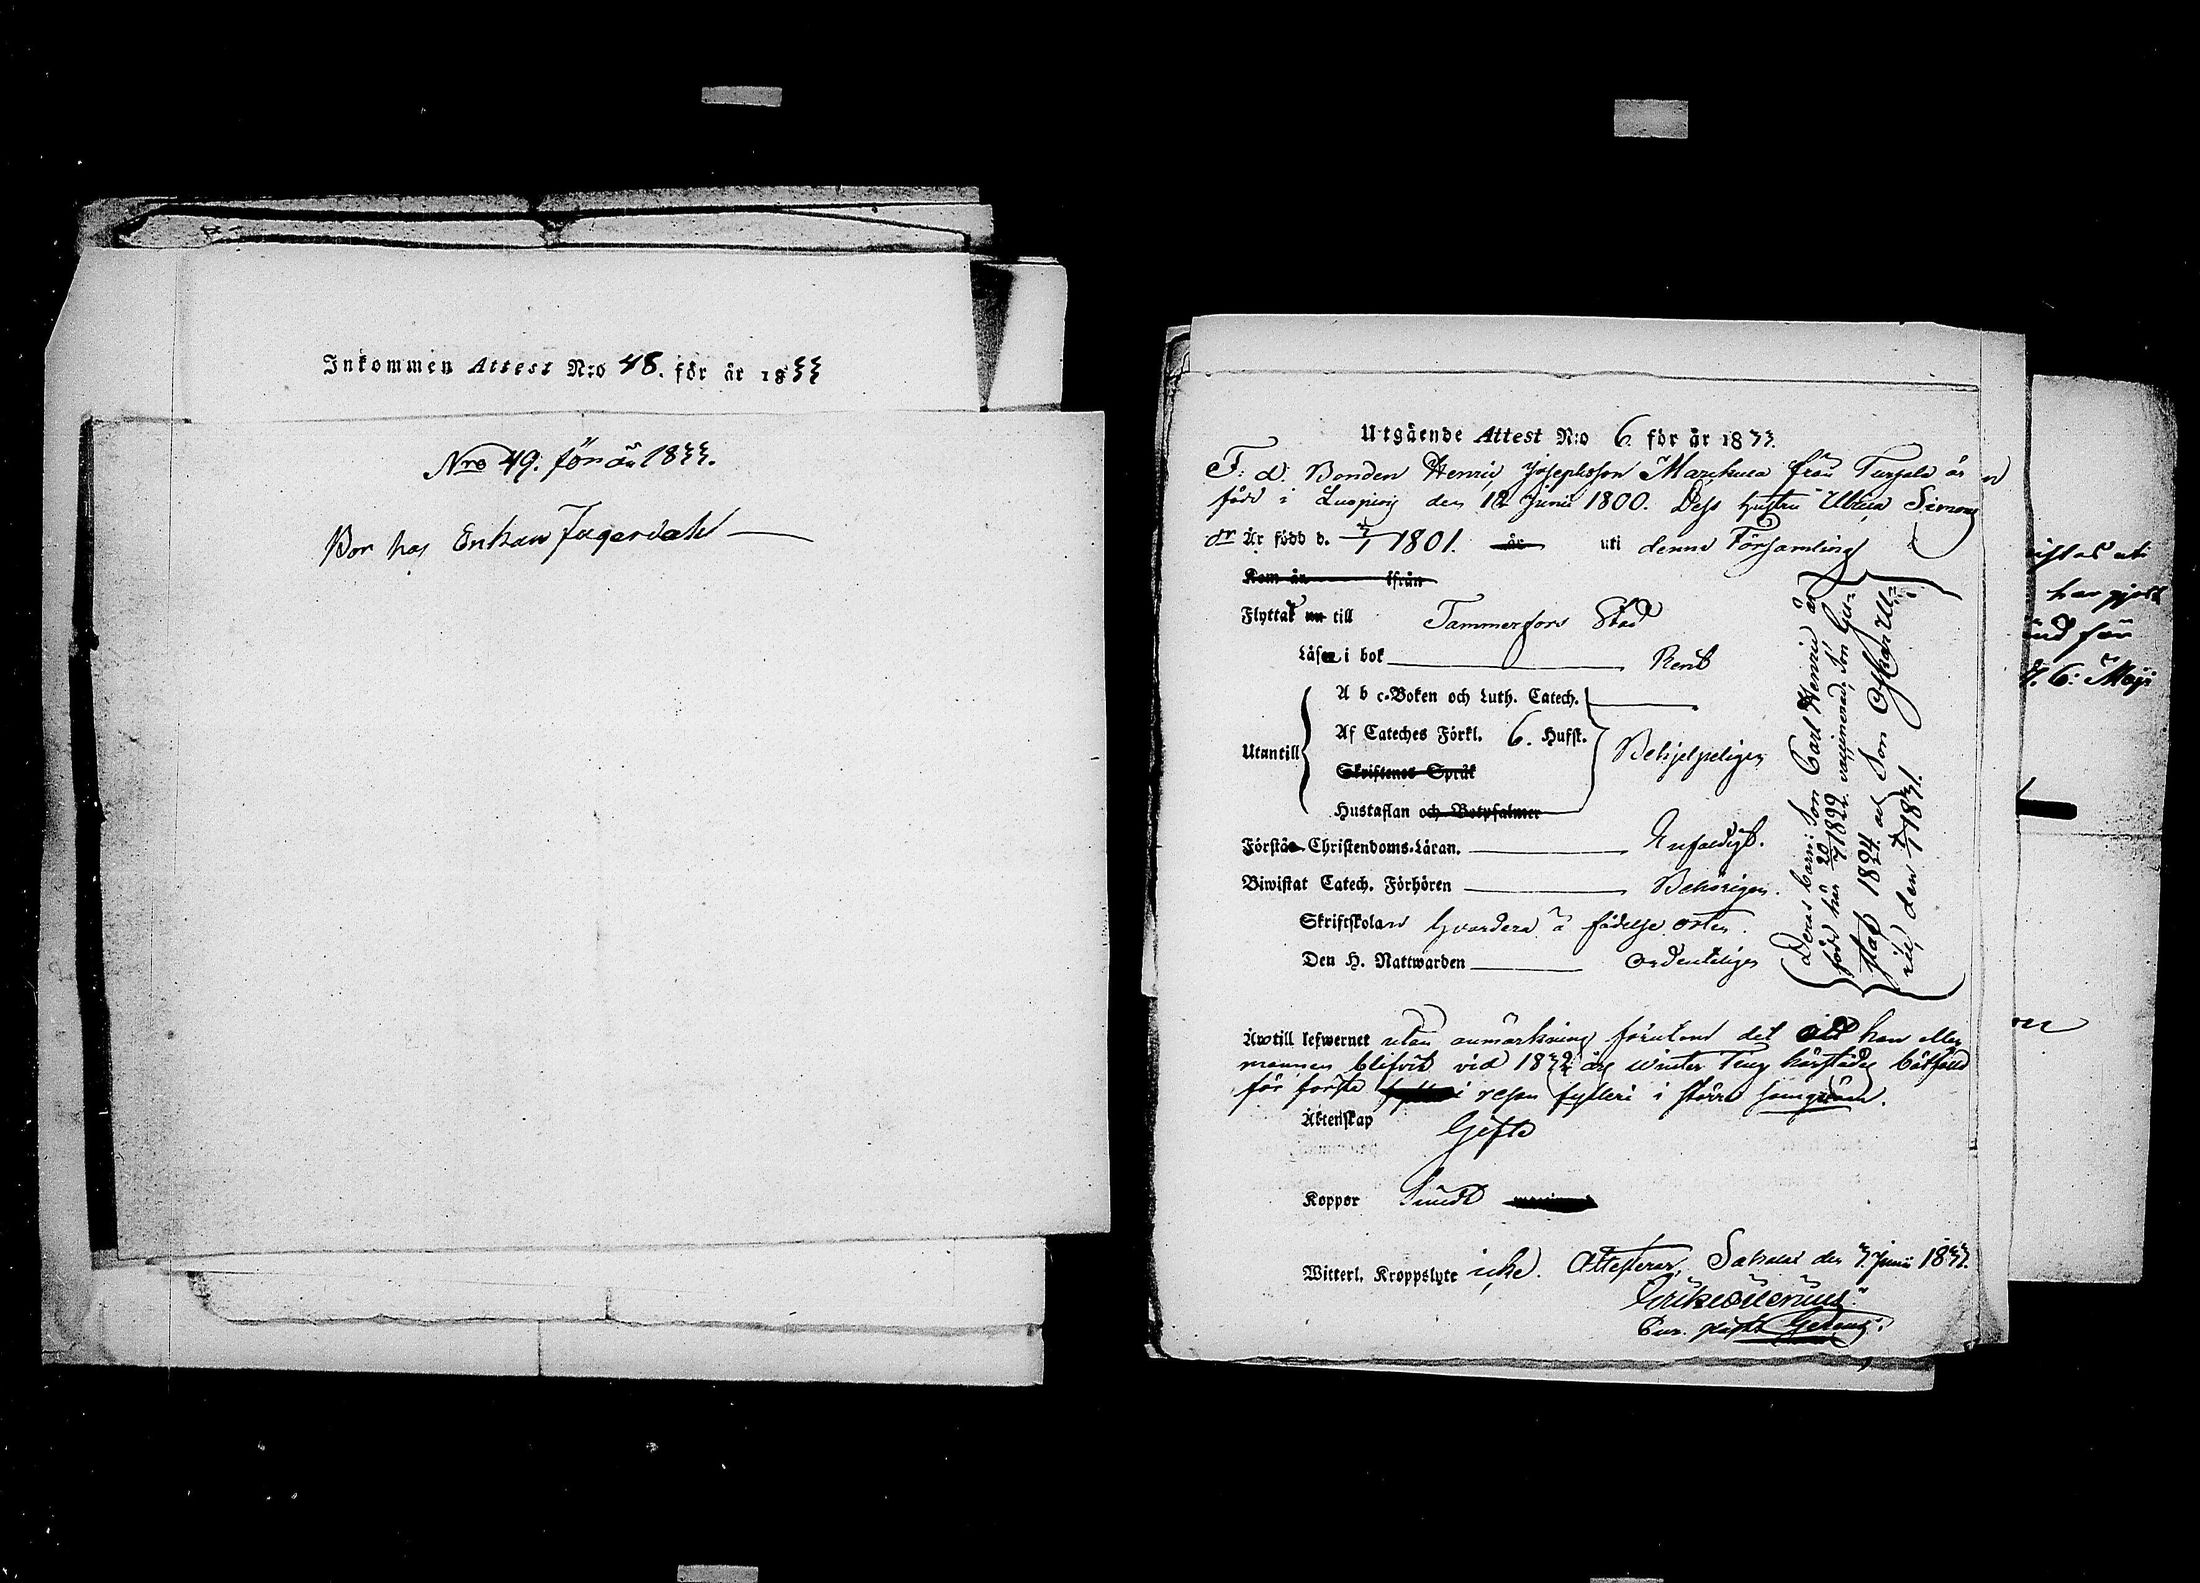 Inkommen Attest N:o 48. för år 1833
Nro 49. för år 1833.
Bor hos Enkan Jagerdahl
Utgående Attest N:o 6 för år 1833.
F: d: Bonden Henric Josephsson från är
född i den 12 Junii 1800. Dess hustru Ulrica Simons
dr Är född d. 2/1 1801. är uti denna Församling
Kom år ifrån
Flyttat nu till Tammerfors Stad
Läser i bok Rent
A b c-Boken och Luth. Catech.
Af Cateches Förkl. 6. Hufst.
Utantill Behjelpeligen
Skriftenes Språk
Hustaflan och Botpsalmer
Förstår Christendoms-Läran. Enfaldigt.
Biwistat Catech. Förhören Behörigen.
Skriftskolan å födelse orten.
Den H. Nattwarden ordenteligen
Deras barn: Son Carl Henric är
född här 20/7 1822. vaccinerad, Son Gu-
staf 1824. och Son
den 1831.
Äro till lefwernet utan anmärkning förutom det att han eller
mannen blifvit vid 1832 års winter Ting härstädes bötfälld
för första resan fylleri i större
Äktenskap Gifte
Koppor
Witterl. Kroppslyte icke. Attesterar, Sahalax den 3. Junii 1833.
istas uti
har gjort
und för
d. 6: Maji